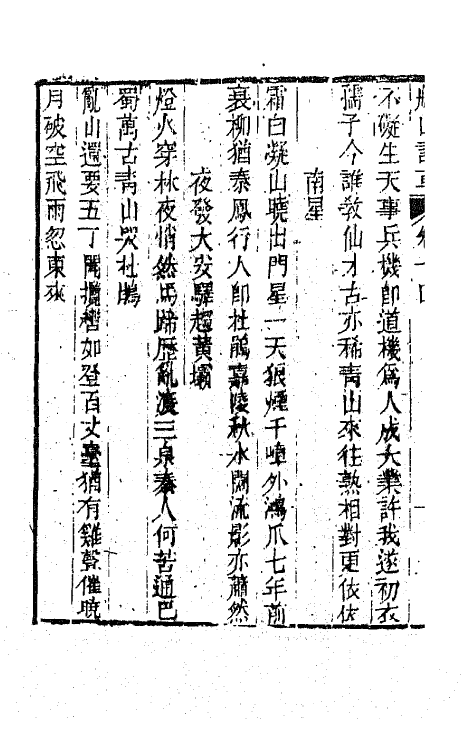 船山詩草 卷十四
不礙生天事兵機即道機爲人成大業許我遂初衣
孺子今誰教仙才古亦稀青山來往熟相對更依依
南星
霜白凝山曉出門星一天狼煙千嶂外鴻爪七年前
衰柳猶秦鳳行人即杜鵑嘉陵秋水闊流影亦蕭然
夜發大安驛趨黃壩
燈火穿林夜悄然馬蹄歷亂渡三泉秦人何苦通巴
蜀萬古青山哭杜鵑
亂山還要五丁開攬轡如登百丈臺猶有雞聲催曉
月破空飛雨忽東來